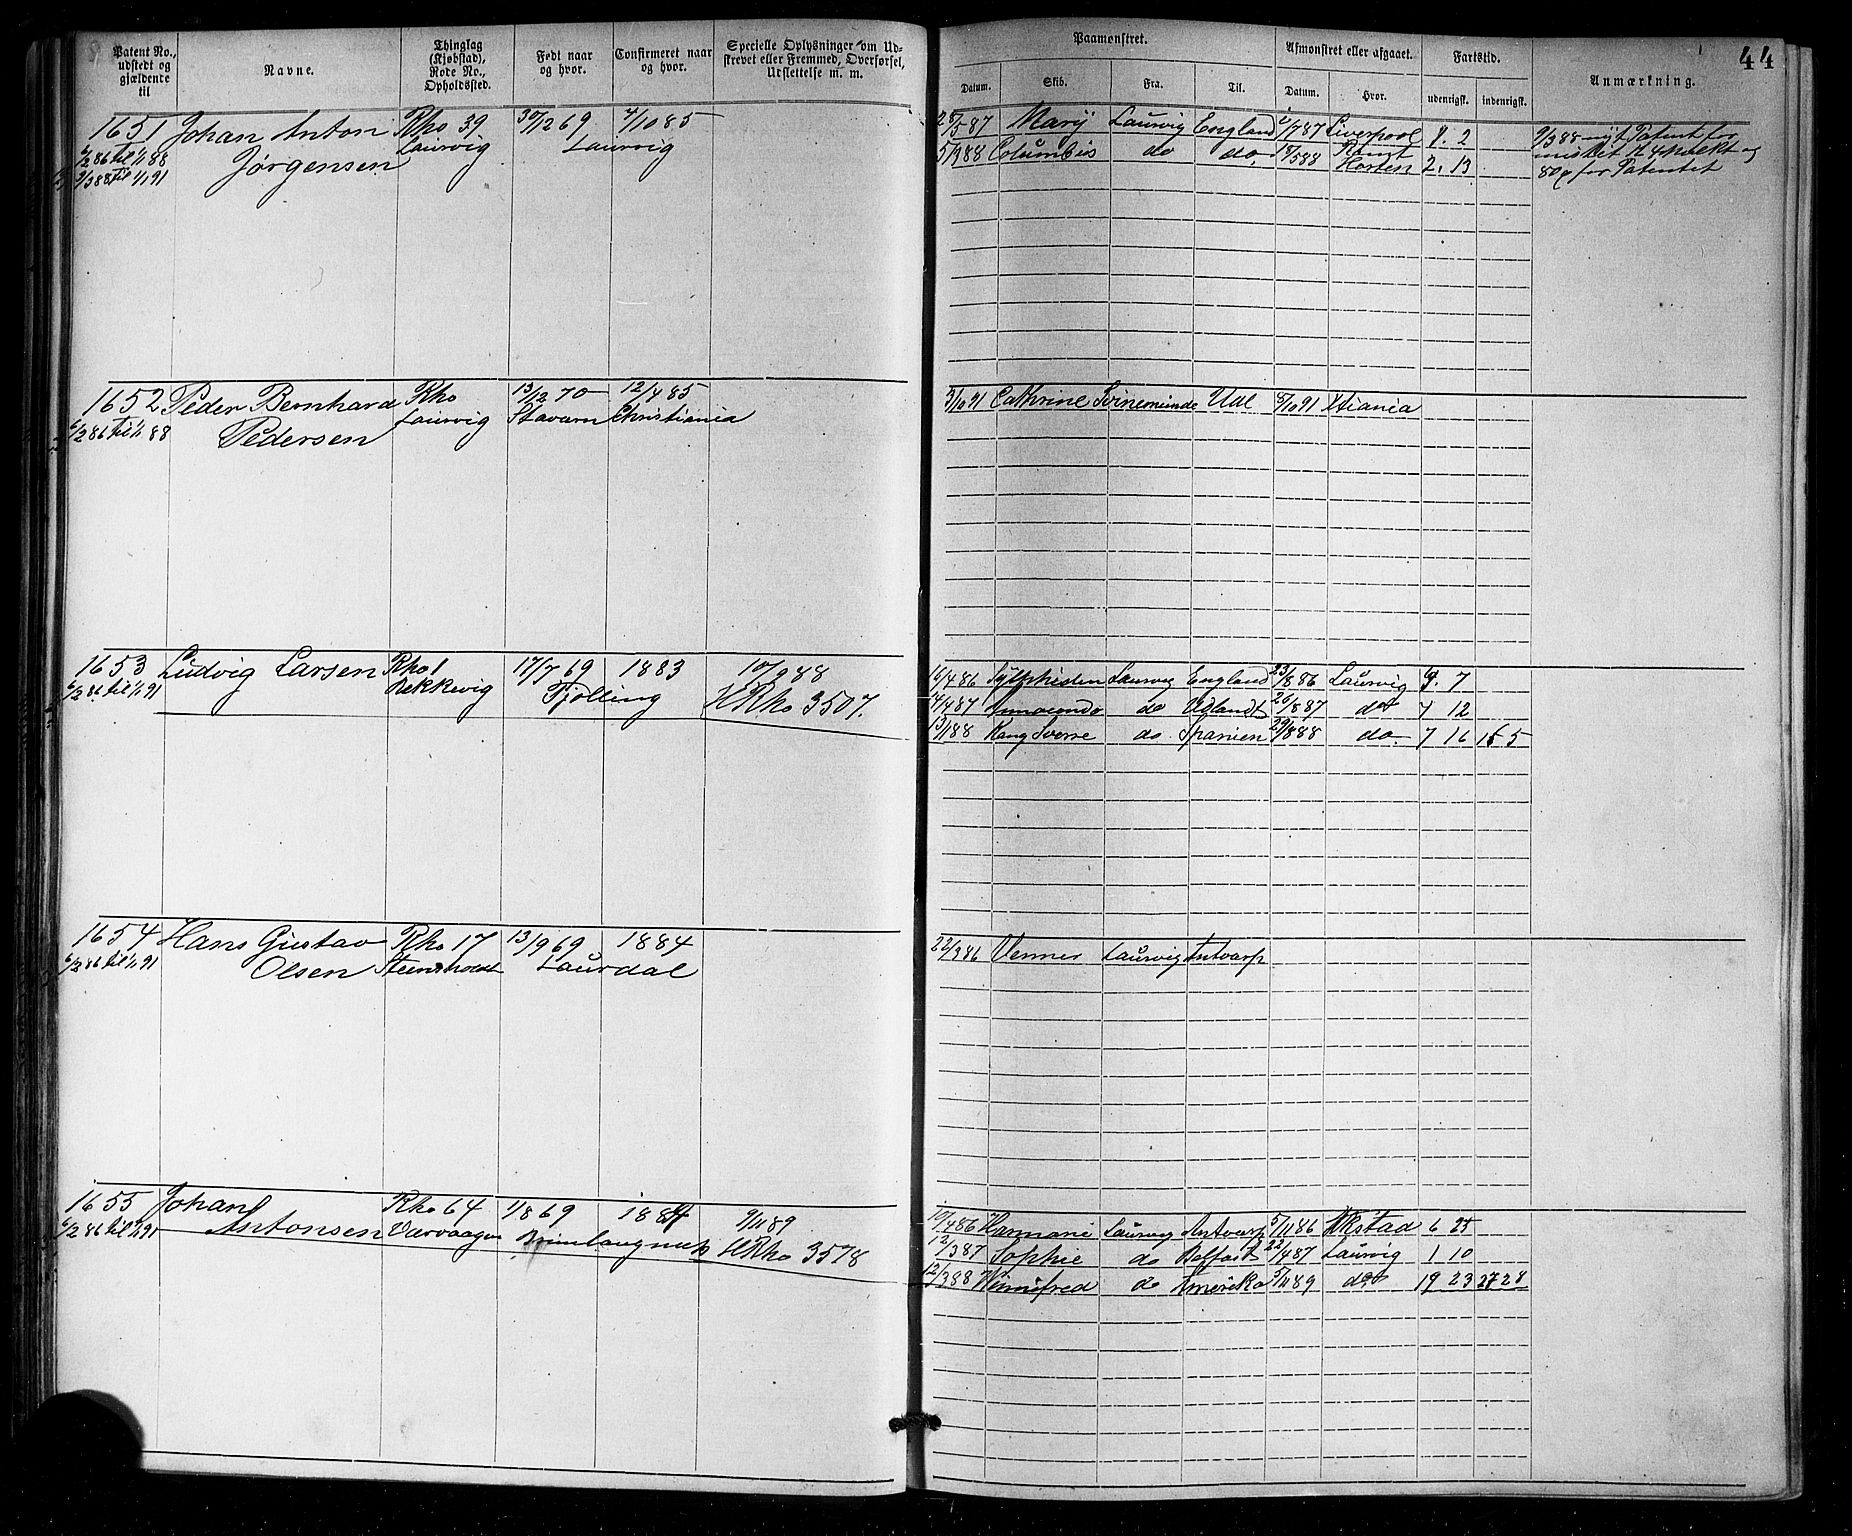 44
Patent No., udstedt og gjældende til
Navne.
Thinglag (Kjøbstad), Rode No., Opholdssted.
Født naar og hvor.
Confirmeret naar og hvor.
Specielle Oplysninger om Udskrevet eller Fremmed, Overførsel, Udslettelse m. m.
Paamønstret.
Afmønstret eller afgaaet.
Fartstid.
Anmærkning.
Datum. Skib. Fra. Til. Datum. Hvor. udenrigsk. indenrigsk.
1651 Johan Anton Rho 39 30/12 69 4/10 85
6/2 86 til 1/1 88 Jørgensen Laurvig Laurvig
9/3 88 til 1/1 91
Marij Laurvig England 1/7 87 Liverpool 1. 2
5/9 88 Columbus do do. Horten 2. 13
9/3 88 nyt Patent for
mistet
80 ø for Patentet
1652 Peder Bernhard Rho 13/12 70 12/4 85
6/2 86 til 1/1 88 Pedersen Laurvig Stavern Christiania
3/10 91 Cathrine Svinemünde Udl 5/10 91 Xtiania
1653 Ludvig Larsen Rho 1 17/7 69 1883 10/9 88
6/2 86 til 1/1 91 Rekkevig Tjølling HRho 3507.
16/4 86 Sylphiden Laurvig England 23/8 86 Laurvig 7
4/4 87 do Udlandt 26/8 87 do 7 12
13/1 88 Kong Sverre do Spanien 29/8 88 do 7 16 5
1654 Hans Gustav Rho 17 13/9 69 1884
6/2 86 til 1/1 91 Olsen Steensholdt Laurdal
22/3 86 Venner Laurvig Antvarp
1655 Johan Rho 64 1/8 69 1884 9/11 89
6/2 86 til 1/1 91 Antonsen Værvaagen Brunlangnæs HRho 3578
19/4 86 Harmonie Laurvig Antvarp 5/11 86 6 25
12/3 87 Sophie do Belfast 22/4 87 Laurvig 1 10
12/3 88 Winnifred do Amerika 5/11 89 do 19 23 27 28